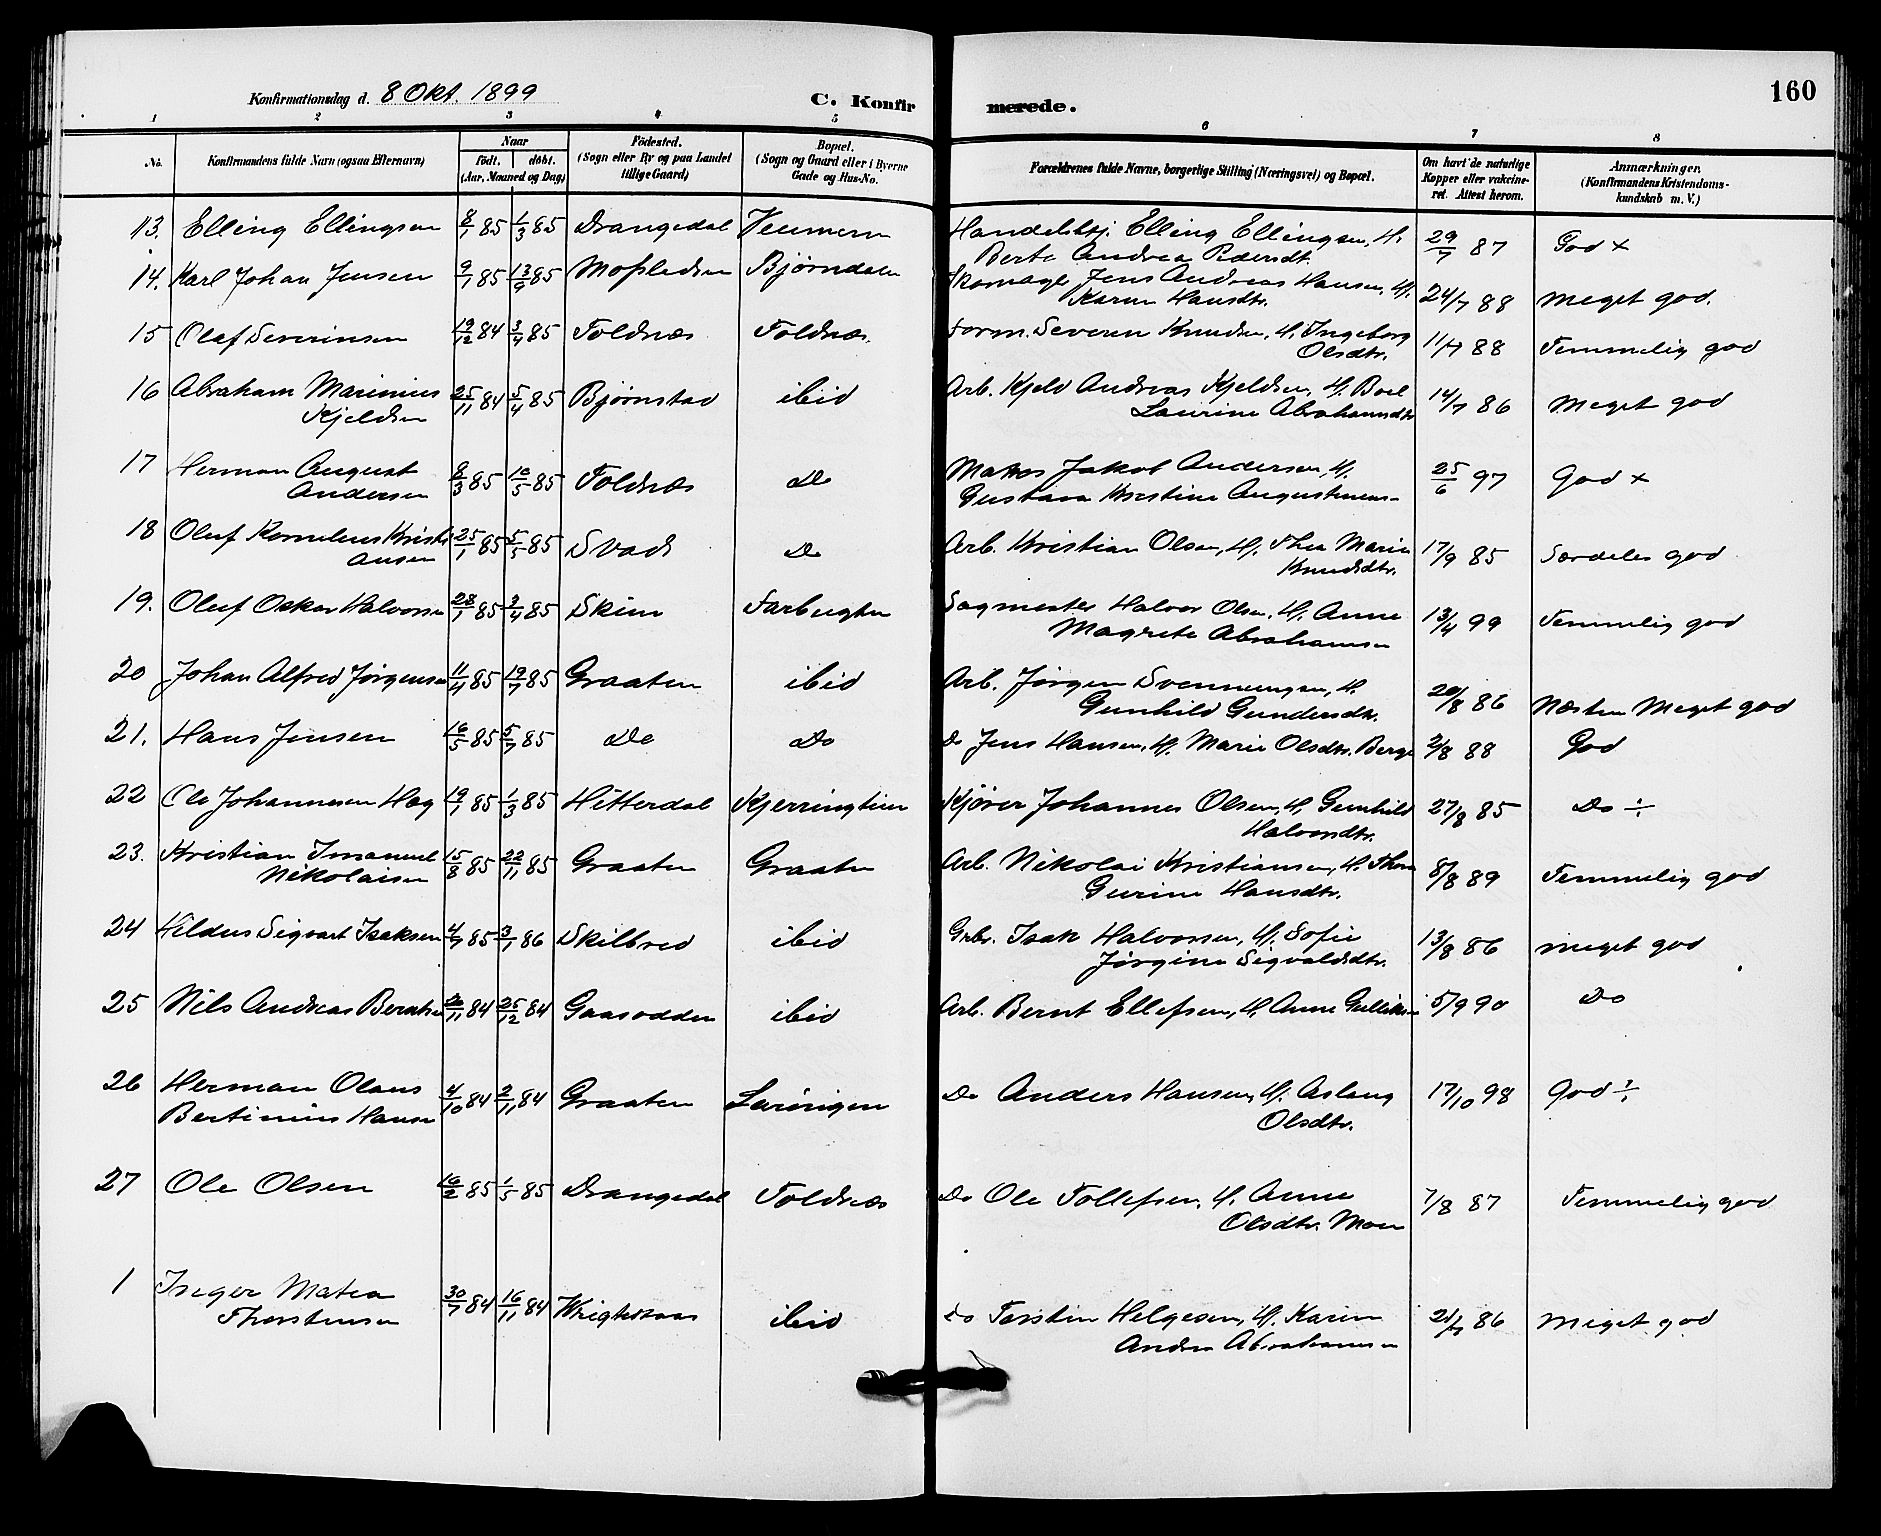 Konfirmationsdag d. 8 Okt. 1899 C. Konfirmerede. 160
1 2 3 4 5 6 7 8
No. Konfirmandens fulde Navn (ogsaa Efternavn) Naar födt. döbt. (Aar, Maaned og Dag) Födested. (Sogn eller By og paa Landet tillige Gaard) Bopæl. (Sogn og Gaard eller i Byerne Gade og Hus-No. Forældrenes fulde Navne, borgerlige Stilling (Næringsvei) og Bopæl. Om havt de naturlige Kopper eller vakcineret. Attest herom. Anmærkninger. (Konfirmandens Kristendomskundskab m. V.)
13. Elling Ellingsen 8/1 85 1/3 85 Drangedal Handelsbtj. Elling Ellingsen, H. 29/7 87 God +
Berte Andrea Pedersdt.
14. Karl Johan Jensen 9/1 85 13/9 85 Bjørndalen Skomager Jens Andreas Hansen, H. 24/7 88 Meget god.
Karen Hansdtr.
15 Olaf Severinsen 19/12 84 3/4 85 Foldnæs Foldnæs. Form. Severin Knudsen, H. Ingeborg 11/7 88 Temmelig god
Olsdtr.
16 Abraham Marinius 25/11 84 5/4 85 Bjørnstad ibid Arb. Kjeld Andreas Kjeldsen, H. Boel 14/7 86 Meget god
Kjeldsen Laurine Abrahamsdtr
17 Herman August 8/3 85 10/5 85 Foldnæs Do Matros Jakob Andersen H. 25/6 97 God +
Andersen Gustava Kristine
18 Oluf Kornelius Kristi 25/1 85 5/5 85 Svad Do Arb. Kristian Olsen, H. Thea Marie 17/9 85 Særdeles god
ansen Knudsdtr.
19. Oluf Oskar Halvorsen 28/1 85 3/4 85 Skien Farbugten Sagmester Halvor Olsen, H. Anne 13/4 99 Temmelig god
Magrete Abrahamsen
20 Johan Alfred Jørgensen 11/4 85 19/7 85 Graaten ibid Arb. Jørgen Svennungsen, H. 20/8 86 Næsten Meget god
Gunhild Gundersdtr.
21. Hans Jensen 16/5 85 5/7 85 Do Do Do Jens Hansen, H. Marie Olsdtr. Berge 2/8 88 God
22 Ole Johannesen Hæg 19/1 85 1/3 85 Hitterdal Kjører Johannes Olsen, H. Gunhild 27/8 85 Do ÷
Halvorsdtr.
23. Kristian Imanuel 15/8 85 22/11 85 Graaten Graaten Arb. Nikolai Kristiansen, H. Thea 8/8 89 Temmelig god
Nikolaisen Gurine Hansdtr.
24 Hildus Sigvart Isaksen 4/7 85 3/1 86 Skilbred ibid Grbr. Isak Halvorsen, H. Sofie 13/8 86 Meget god
Jørgine Sigvaldsdtr.
25 Nils Andreas Berntsen 84 25/12 84 Gaasodden ibid Arb. Bernt Ellefsen, H. Anne Gulliksen 5/9 90 Do
26 Herman Olaus 4/10 84 2/11 84 Graaten Do Anders Hansen, H. Aslaug 17/10 98 God ÷
Bertinius Hansen Olsdtr.
27 Ole Olsen 16/2 85 1/5 85 Drangedal Foldnæs Do Ole Tollefsen, H. Anne 7/8 87 Temmelig god
Olsdtr. Moen
1 Inger Matea 30/7 84 16/11 84 ibid Do Torsten Helgesen, H. Karen 86 Meget god
Thorstensen Andrea Abrahamsen